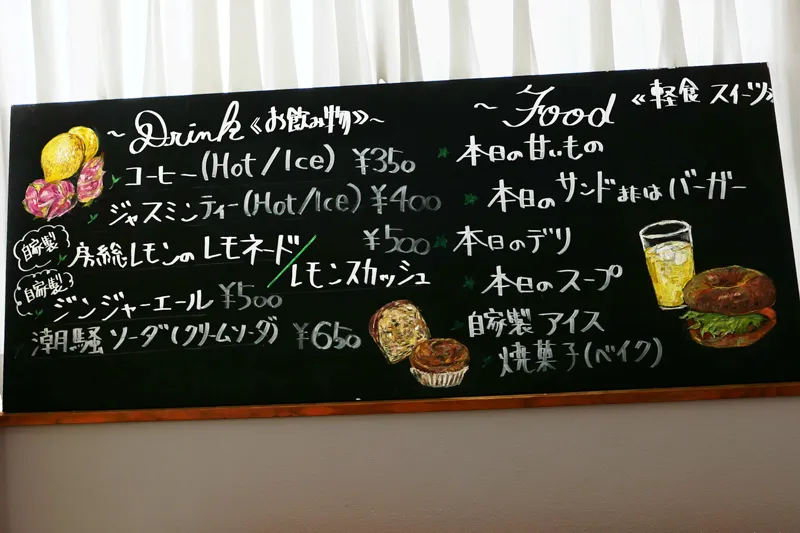 ~ Drink《お飲み物》~
コーヒー(Hot/Ice) ¥350
ジャスミンティー(Hot/Ice) ¥400
自家製 房総レモンのレモネード/レモンスカッシュ ¥500
自家製 ジンジャーエール ¥500
潮騒ソーダ(クリームソーダ) ¥650
~ Food《軽食 スイーツ》
本日の甘いもの
本日のサンドまたはバーガー
本日のデリ
本日のスープ
自家製アイス
焼菓子(ベイク)